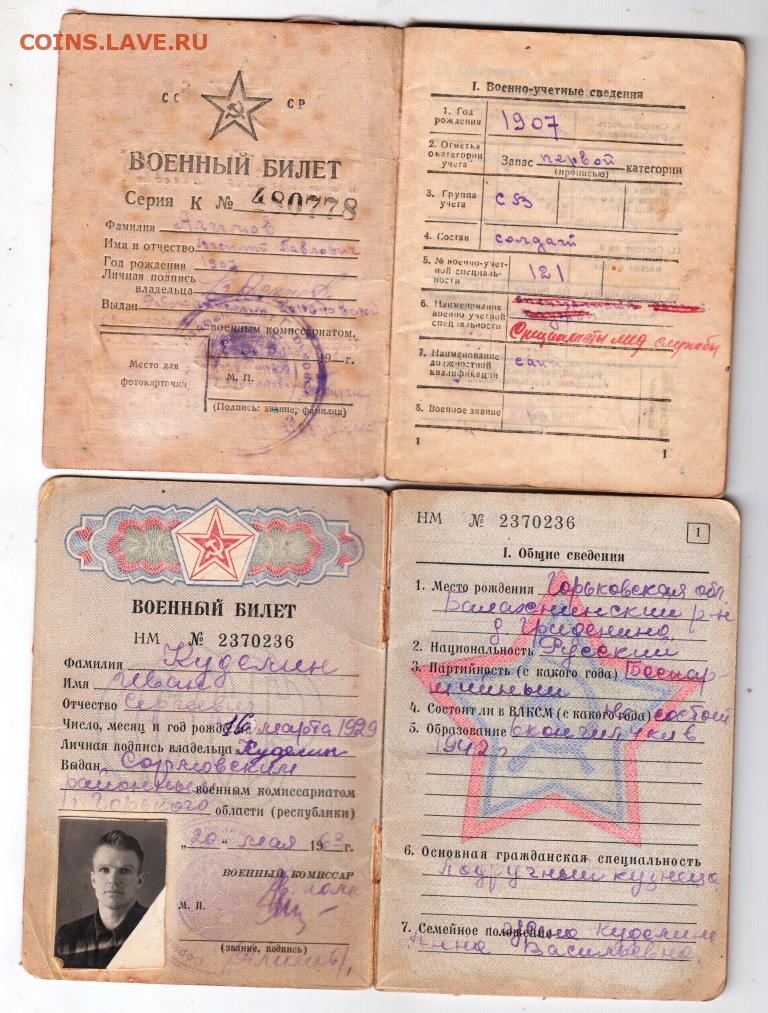 COINS.LAVE.RU
СС СР
ВОЕННЫЙ БИЛЕТ
Серия К № 480778
Фамилия
Имя и отчество Василий Павлович
Год рождения 1907
Личная подпись
владельца
Выдан
военным комиссариатом,
Место для
фотокарточки
19 г.
М. П.
(Подпись: звание, фамилия)
I. Военно-учетные сведения
1. Год рождения 1907
2. Отметка о категории учета Запас первой категории
(прописью)
3. Группа учета СВ
4. Состав солдат
5. № военно-учетной специальности 121
6. Наименование военно учетной специальности
Специалисты мед службы
7. Наименование должностной квалификации
8. Военное звание
1 1
ВОЕННЫЙ БИЛЕТ
НМ № 2370236
Фамилия Куделин
Имя Иван
Отчество Сергеевич
Число, месяц и год рожд 16 марта 1929
Личная подпись владельца Куделин
Выдан Сормовским
районным военным комиссариатом
г. Горького области (республики)
„20“ мая 196 г.
ВОЕННЫЙ КОМИССАР
М. П.
(звание, подпись)
НМ № 2370236
1
I. Общие сведения
1. Место рождения Горьковская обл
Балахнинский р-н
д Гриденино
2. Национальность Русский
3. Партийность (с какого года) Беспар-
тийный
4. Состоит ли в ВЛКСМ (с какого года) не состоит
5. Образование Окончил 4 кл в
1942 г
6. Основная гражданская специальность
подручный кузнеца
7. Семейное положение Жена Куделина
Анна Васильевна